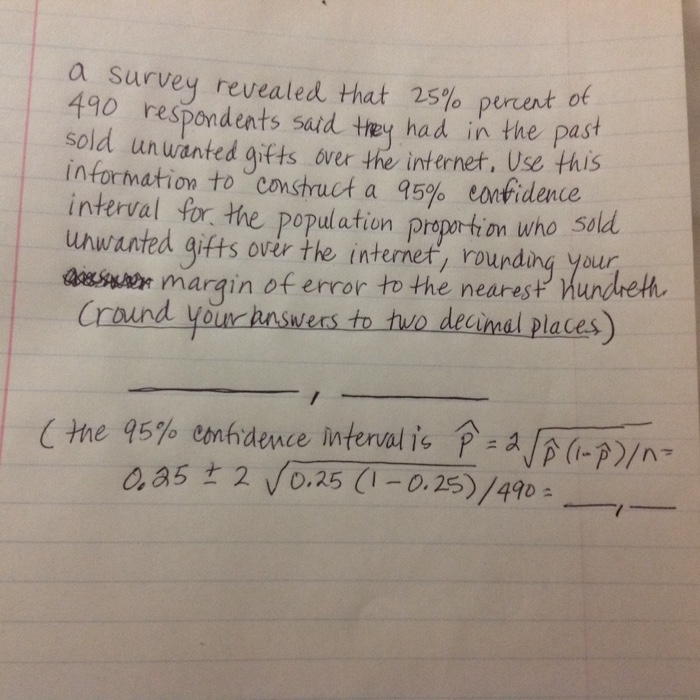 a survey revealed that 25% percent of
490 respondents said they had in the past
sold unwanted gifts over the internet. Use this
information to construct a 95% confidence
interval for the population proportion who sold
unwanted gifts over the internet, rounding your
margin of error to the nearest hundreth.
(round your answers to two decimal places)
____, ____
(the 95% confidence interval is p̂ = 2√p̂(1-p̂)/n =
0.25 ± 2 √0.25 (1-0.25)/490 = __,__